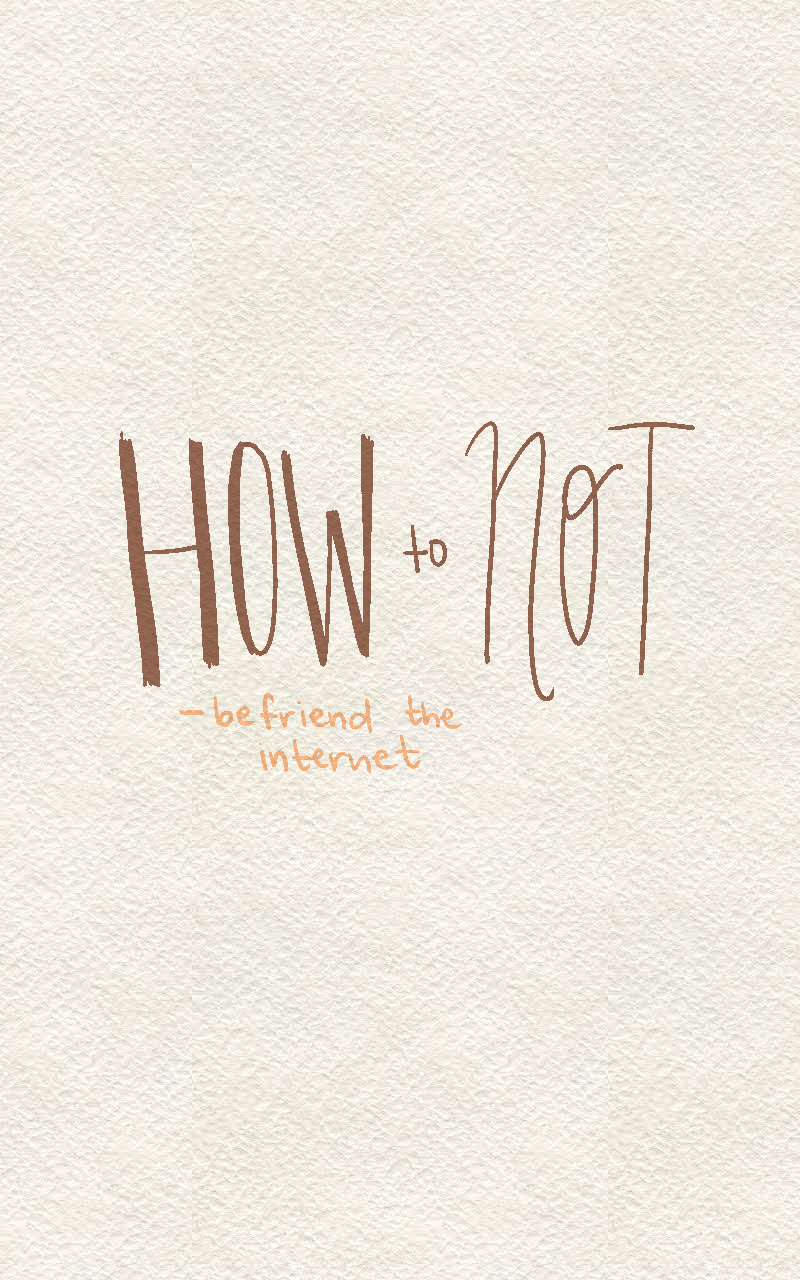 HOW to NOT
- befriend the
internet